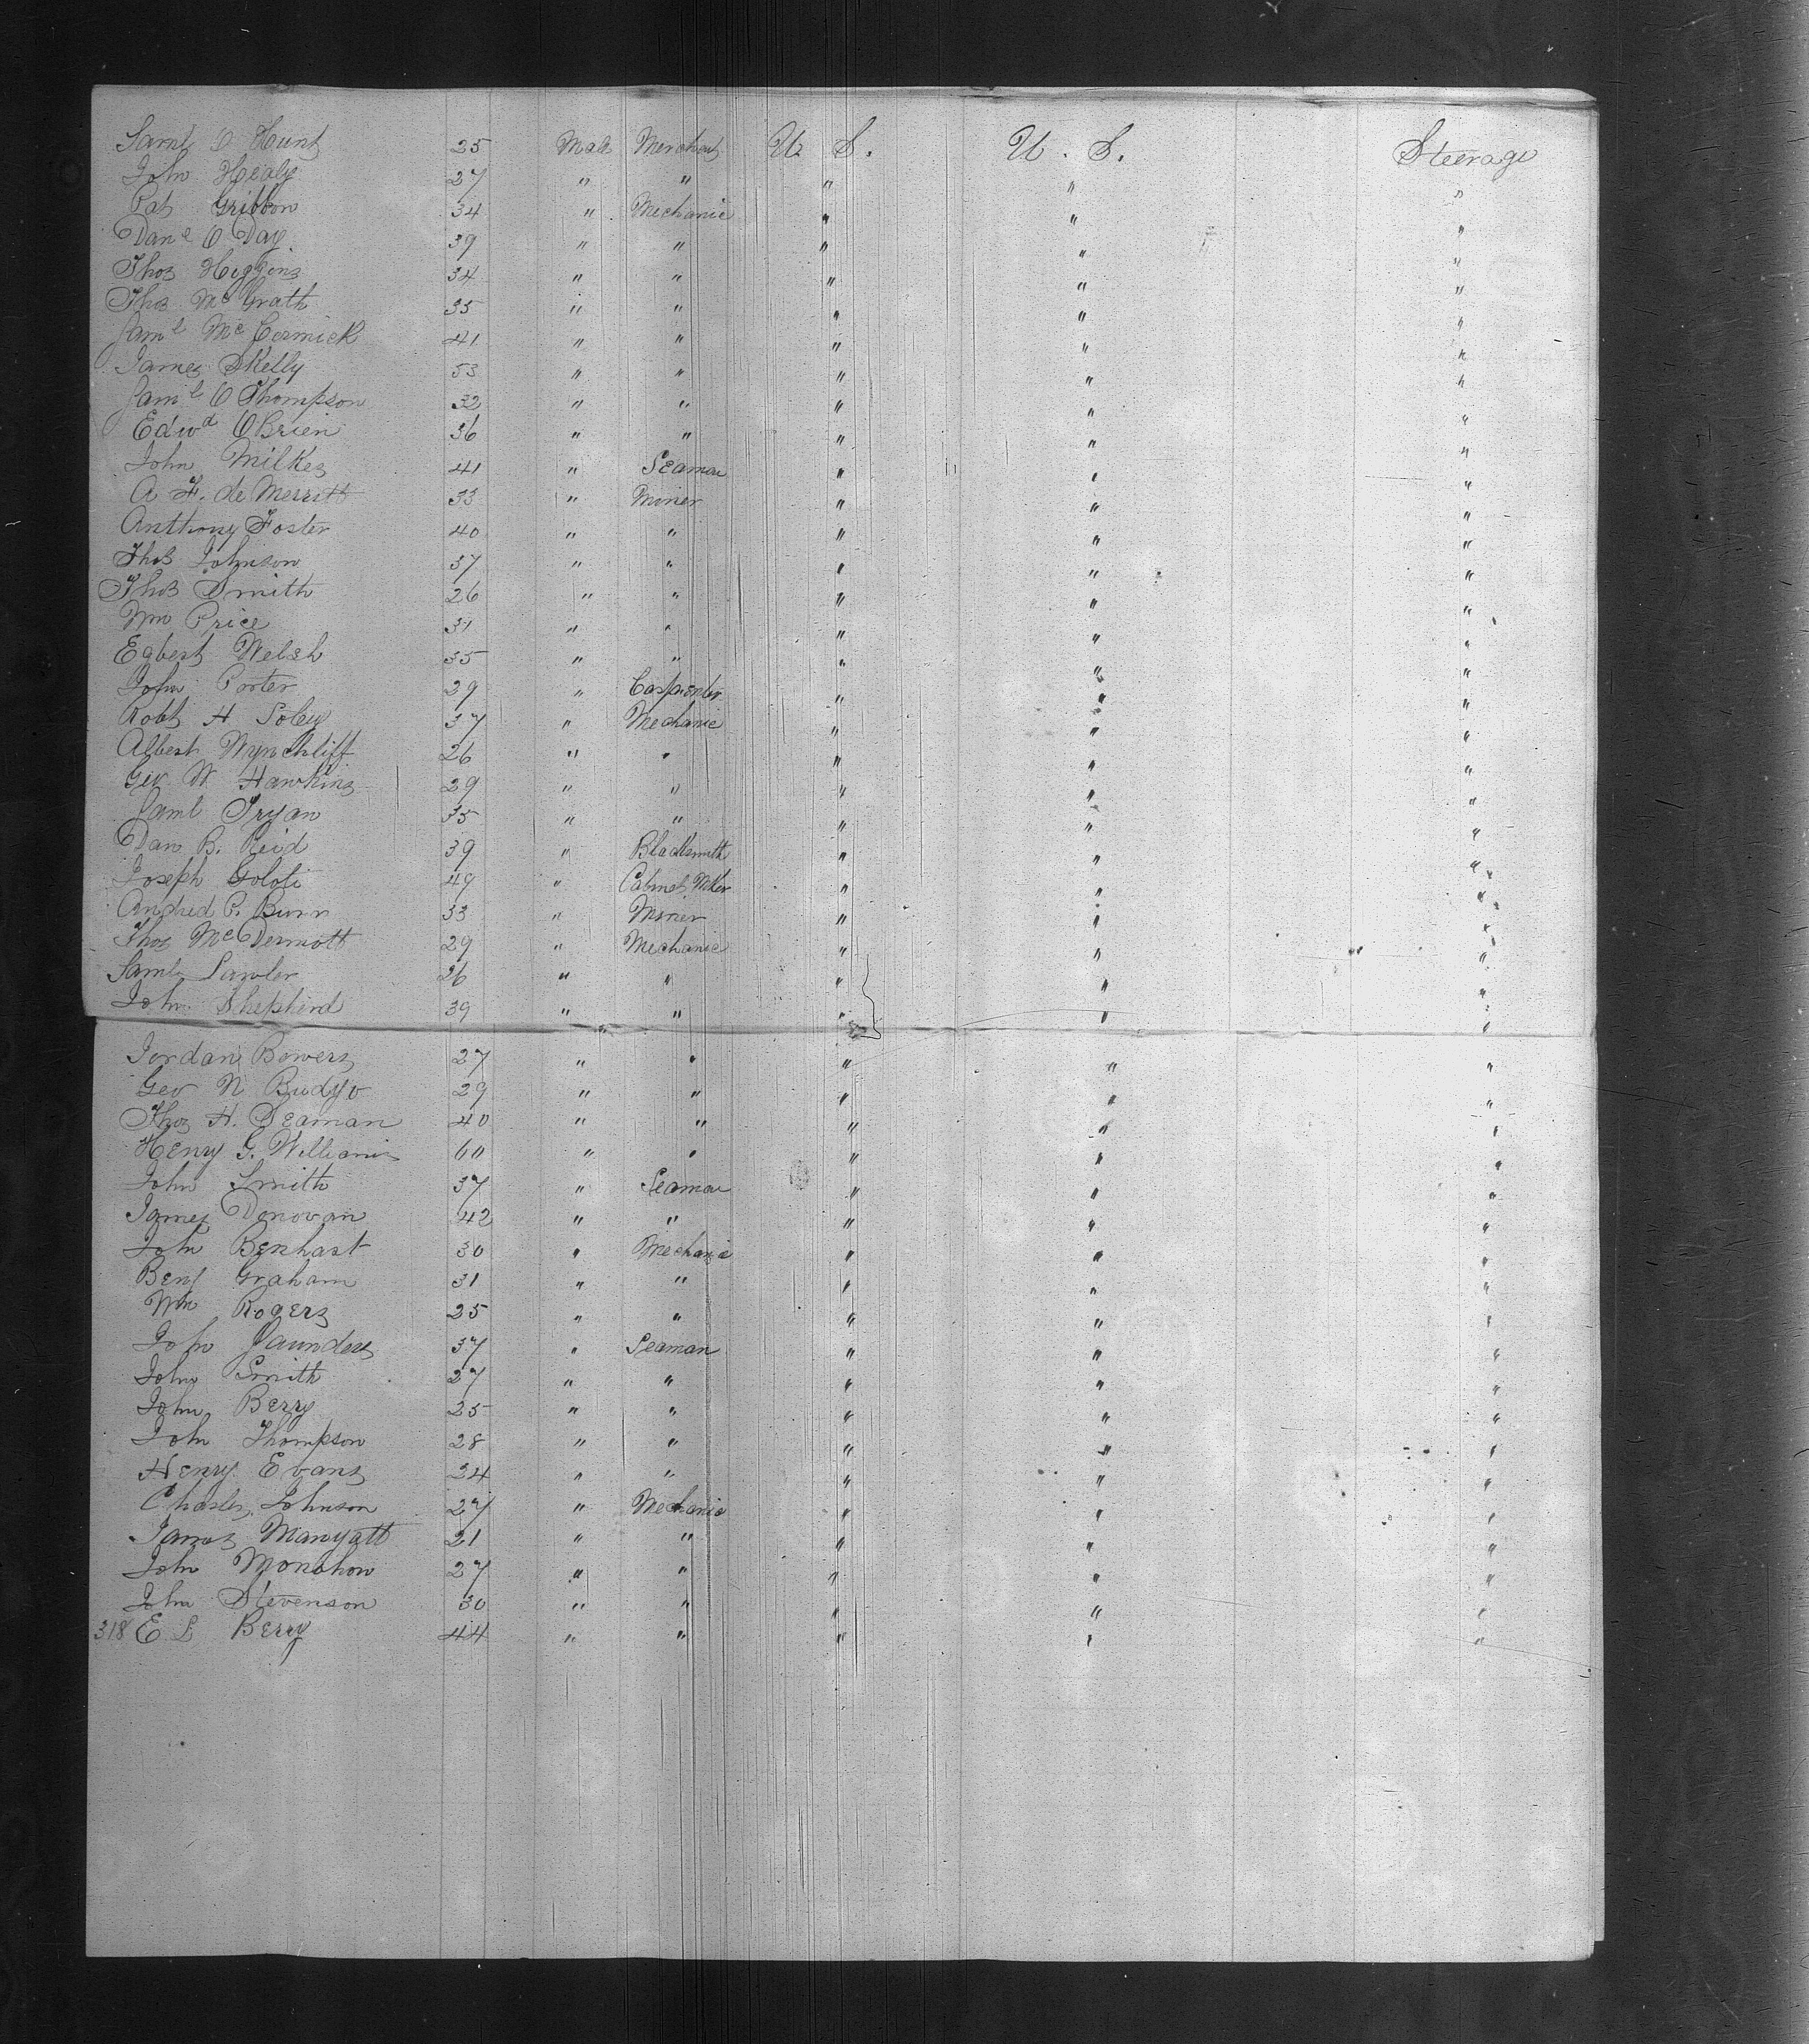 Saml O Hunt 25 Male Merchant U. S. U. S. Steerage
John Healy 27 " " " " "
Pat Gribbon 34 " Mechanic " " "
Danl O Day 39 " " " " "
Thos Higgins 34 " " " " "
Thos McGrath 35 " " " " "
Saml McCormick 41 " " " " "
James Skelly 53 " " " " "
Saml O Thompson 32 " " " " "
Edwd OBrien 36 " " " " "
John Milkes 41 " Seaman " " "
A F. de Merritt 33 " Miner " " "
Anthony Foster 40 " " " " "
Thos Johnson 37 " " " " "
Thos Smith 26 " " " " "
Wm Price 31 " " " " "
Egbert Welsh 35 " " " " "
John Porter 29 " Carpenter " " "
Robt H Soley 37 " Mechanic " " "
Albert Wynchliff 26 " " " " "
Geo W Hawkins 29 " " " " "
Saml Tryan 35 " " " " "
Dan B. Reid 39 " Blacksmith " " "
Joseph Goloti 49 " Cabinet Mker " " "
Andred P. Burr 33 " Miner " " "
Thos McDermott 29 " Mechanic " " "
Saml Lawler 26 " " " " "
John Shepherd 39 " " " " "
Jordan Bowers 27 " " " " "
Geo N 29 " " " " "
Thos H. Seaman 40 " " " " "
Henry G. Williams 60 " " " " "
John Smith 37 " Seaman " " "
James Donovan 42 " " " " "
John Benhart 30 " Mechanic " " "
Benj Graham 31 " " " " "
Wm Rogers 25 " " " " "
John Saunders 37 " Seaman " " "
John Smith 27 " " " " "
John Berry 25 " " " " "
John Thompson 28 " " " " "
Henry Evans 24 " " " " "
Charles Johnson 27 " Mechanic " " "
James Manyatt 21 " " " " "
John Monohon 27 " " " " "
John Stevenson 30 " " " " "
318 E L Berry 44 " " " " "